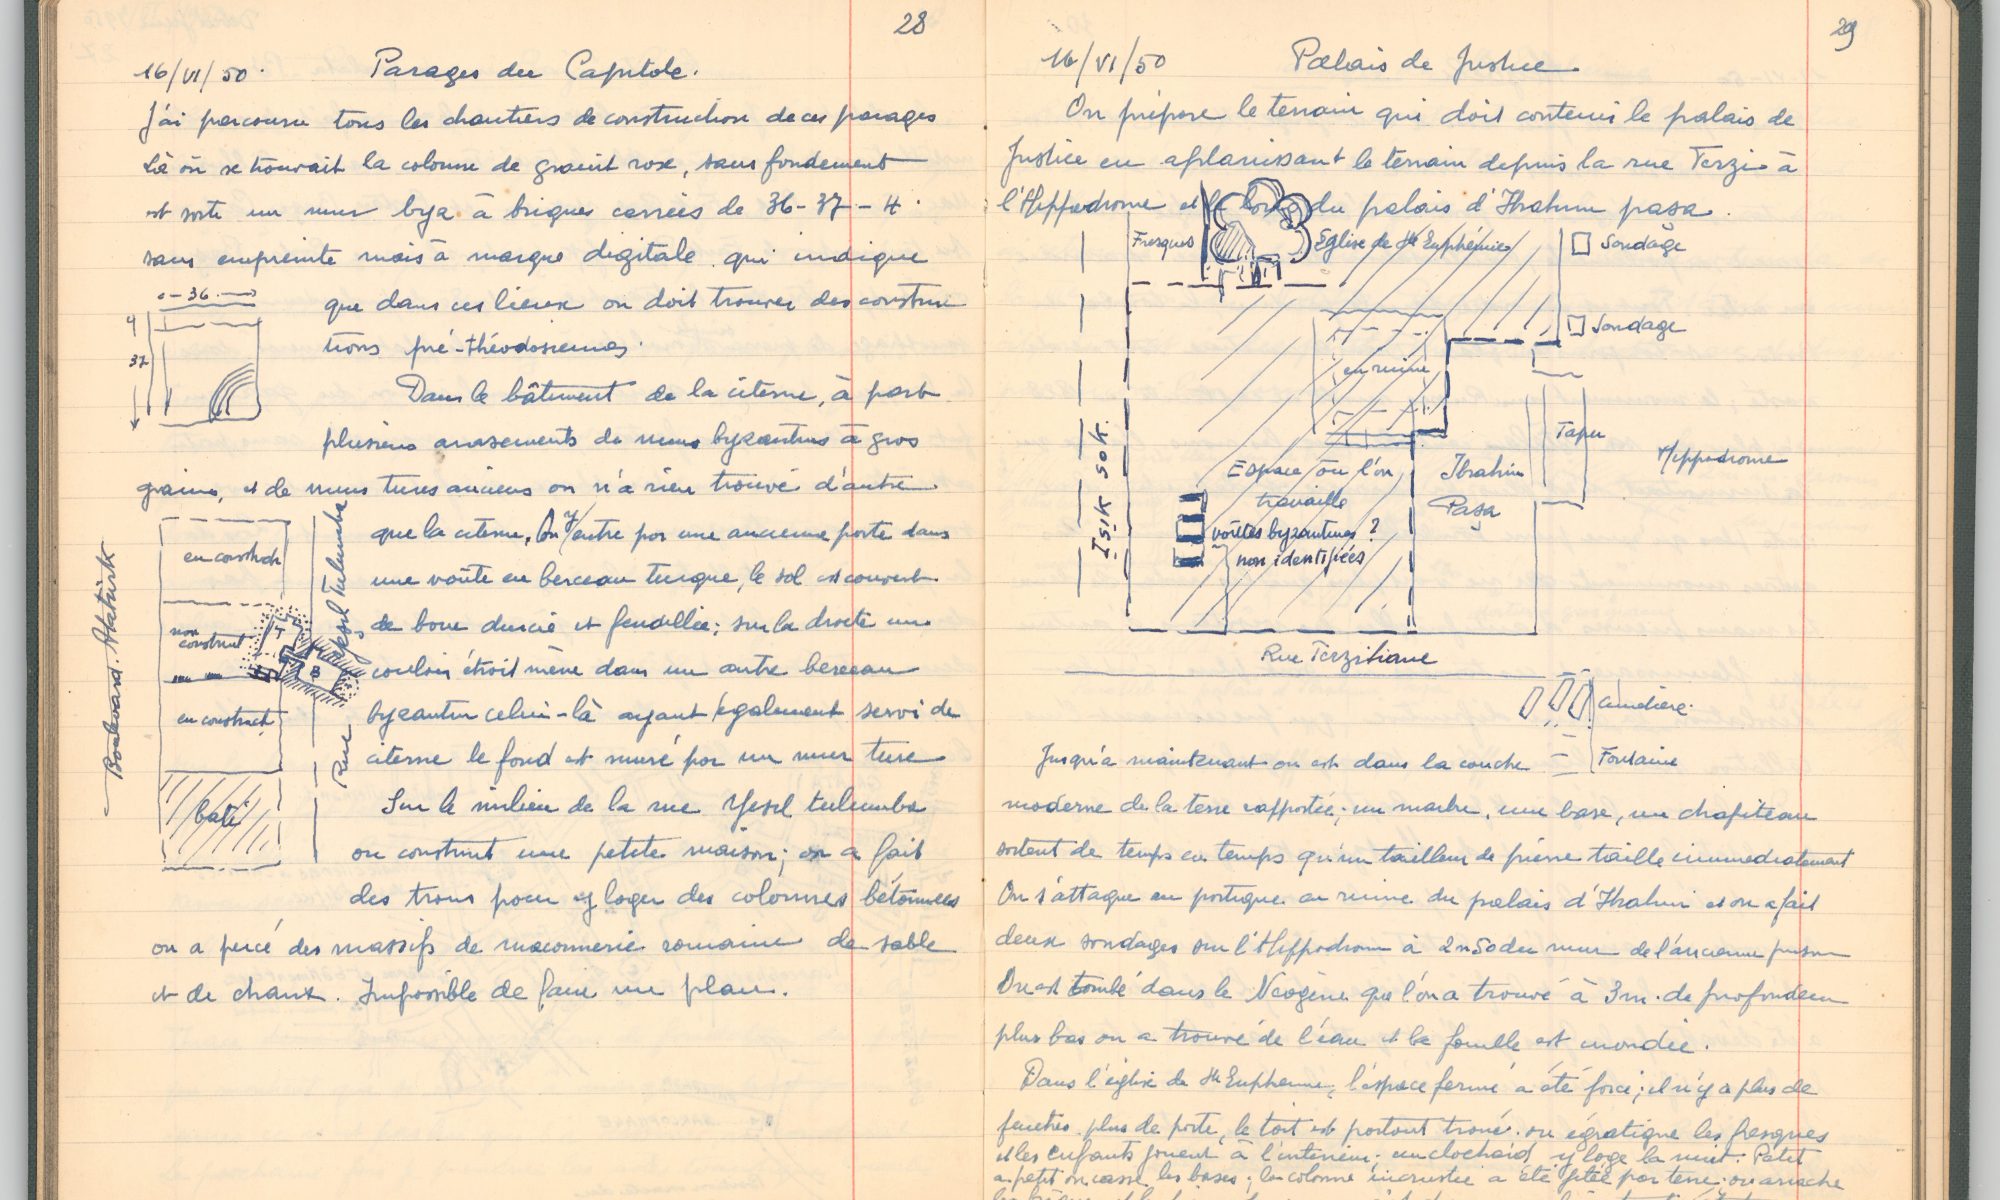 28
16/VI/50. Parages du Capitole.
J'ai parcouru tous les chantiers de construction de ces parages
Là où se trouvait la colonne de granit rose, sans fondement
est sorti un mur byz. à briques carrées de 36-37-4.
sans empreinte mais à marque digitale qui indique
que dans ces lieux on doit trouver des construc
tions pré-théodosiennes.
36
4
37
Dans le bâtiment de la citerne, à part
plusieurs arasements de murs byzantins à gros
grains, et de murs turcs anciens on n'a rien trouvé d'autre
que la citerne. On y entre par une ancienne porte dans
une voûte en berceau turque, le sol est couvert
de boue durcie et fendillée; sur la droite un
couloir étroit mène dans un autre berceau
byzantin celui-là ayant également servi de
citerne le fond est muré par un mur turc
Sur le milieu de la rue Yesil tulumba
on construit une petite maison; on a fait
des trous pour y loger des colonnes bétonnées
on a percé des massifs de maçonnerie romaine de sable
et de chaux. Impossible de faire un plan.
Boulevard. Atatürk
en construct
non construit
en construct
bati
T
B
Rue Yesil Tulumba
29
16/VI/50 Palais de Justice
On prépare le terrain qui doit contenir le palais de
Justice en aplanissant le terrain depuis la rue Terzi à
l'Hippodrome et le long du palais d'Ibrahim pasa.
Fresques
Eglise de Ste Euphémie
Sondage
Sondage
en ruine
Tapu
Hippodrome
Isik Sok.
Espace où l'on
travaille
Ibrahim
Pasa
voûtes byzantines?
non identifiées
Rue Terzihane
Cimetière
Fontaine
Jusqu'à maintenant on est dans la couche
moderne de la terre rapportée; un marbre, une base, un chapiteau
sortent de temps en temps qu'un tailleur de pierre taille immédiatement
On s'attaque au portique en ruine du palais d'Ibrahim et on a fait
deux sondages sur l'Hippodrome à 2m50 du mur de l'ancienne prison
On est tombé dans le Néogène que l'on a trouvé à 3m. de profondeur
plus bas on a trouvé de l'eau et la fouille est inondée.
Dans l'église de Ste Euphémie, l'espace fermé a été forcé; il n'y a plus de
fenêtres plus de porte, le toit est partout troué. on égratigne les fresques
et les enfants jouent à l'intérieur; un clochard y loge la nuit. Petit
a petit on casse les bases; la colonne incrustée a été jetée par terre; on arrache